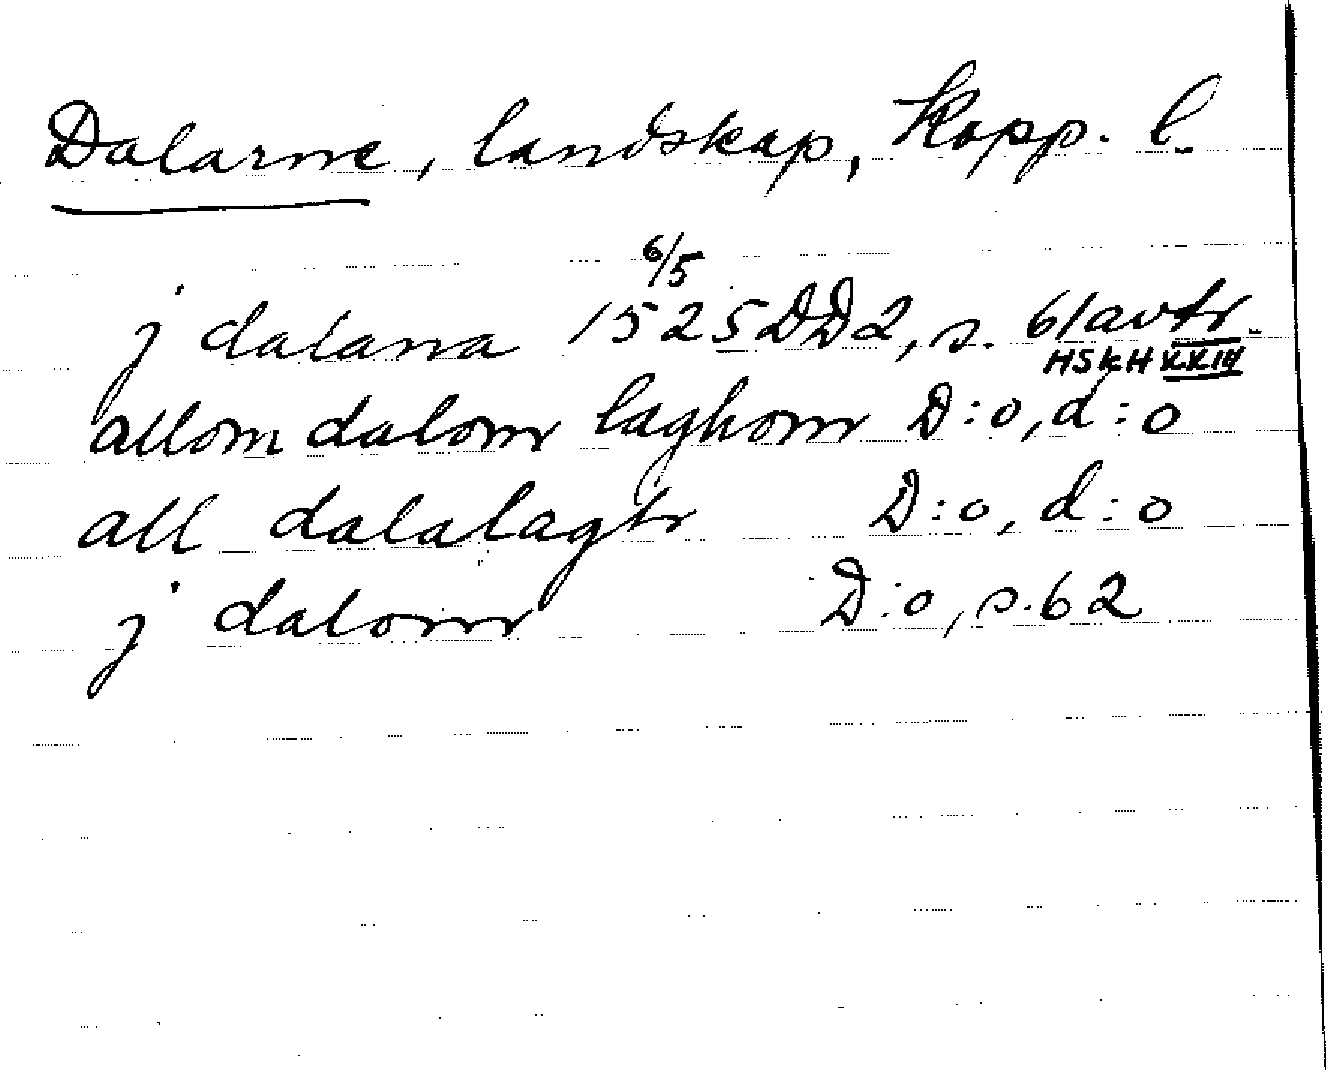 Dalarne, landskap, Kopp. l.
6/5
j dalana 1525 DD2, s. 61 avtr.
HSkH XXIII
allom dalom laghom D:o, d:o
all dalalagh D:o, d:o
j dalom D:o, s. 62